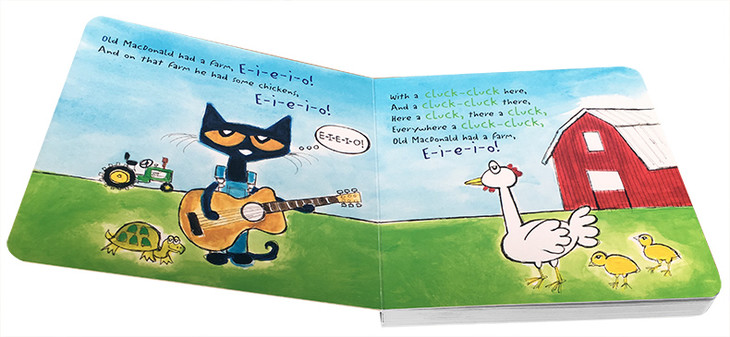 Old MacDonald had a farm, E-i-e-i-o!
And on that farm he had some chickens,
E-i-e-i-o!
E-I-E-I-O!
With a cluck-cluck here,
And a cluck-cluck there,
Here a cluck, there a cluck,
Everywhere a cluck-cluck,
Old MacDonald had a farm,
E-i-e-i-o!